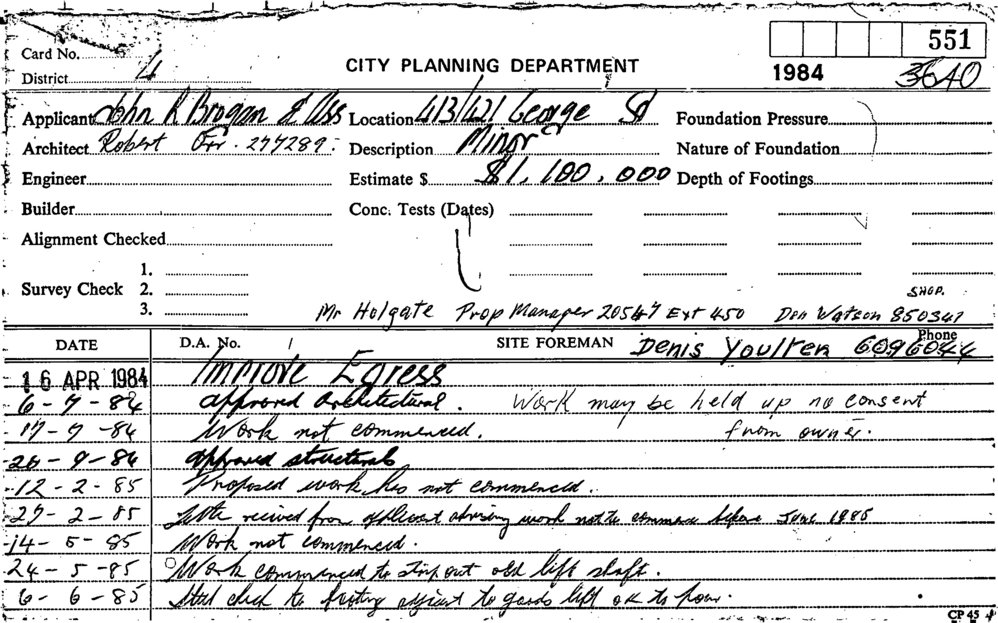 551
Card No.
CITY PLANNING DEPARTMENT
District 4
1984 3640
Applicant John R Brogan & Ass Location 413/421 George St Foundation Pressure
Architect Robert Orr. 277289. Description Minor Nature of Foundation
Engineer Estimate $ $1,100,000 Depth of Footings
Builder Conc. Tests (Dates)
Alignment Checked
1.
Survey Check 2.
3.
SHOP.
Mr Holgate Prop Manager 20547 Ext 450 Den Watson 850347
DATE D.A. No. SITE FOREMAN Denis Youlten Phone 6096044
16 APR 1984 Improve Egress
6-7-84 approved architectural. Work may be held up no consent
17-7-84 Work not commenced. from owner.
26-9-84 approved structural
12-2-85 Proposed work has not commenced.
27-2-85 received from applicant advising work not to commence before June 1985
14-5-85 Work not commenced.
24-5-85 Work commenced to strip out old lift shaft.
6-6-85 Steel check to footing adjacent to goods lift ok to pour.
CP 45